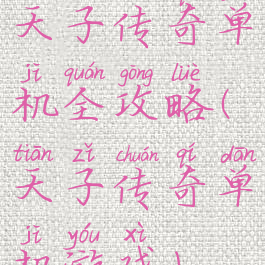 天子传奇单
jī quán gōng lüè
机全攻略(
tiān zǐ chuán qí dān
天子传奇单
jī yóu xì
机游戏)